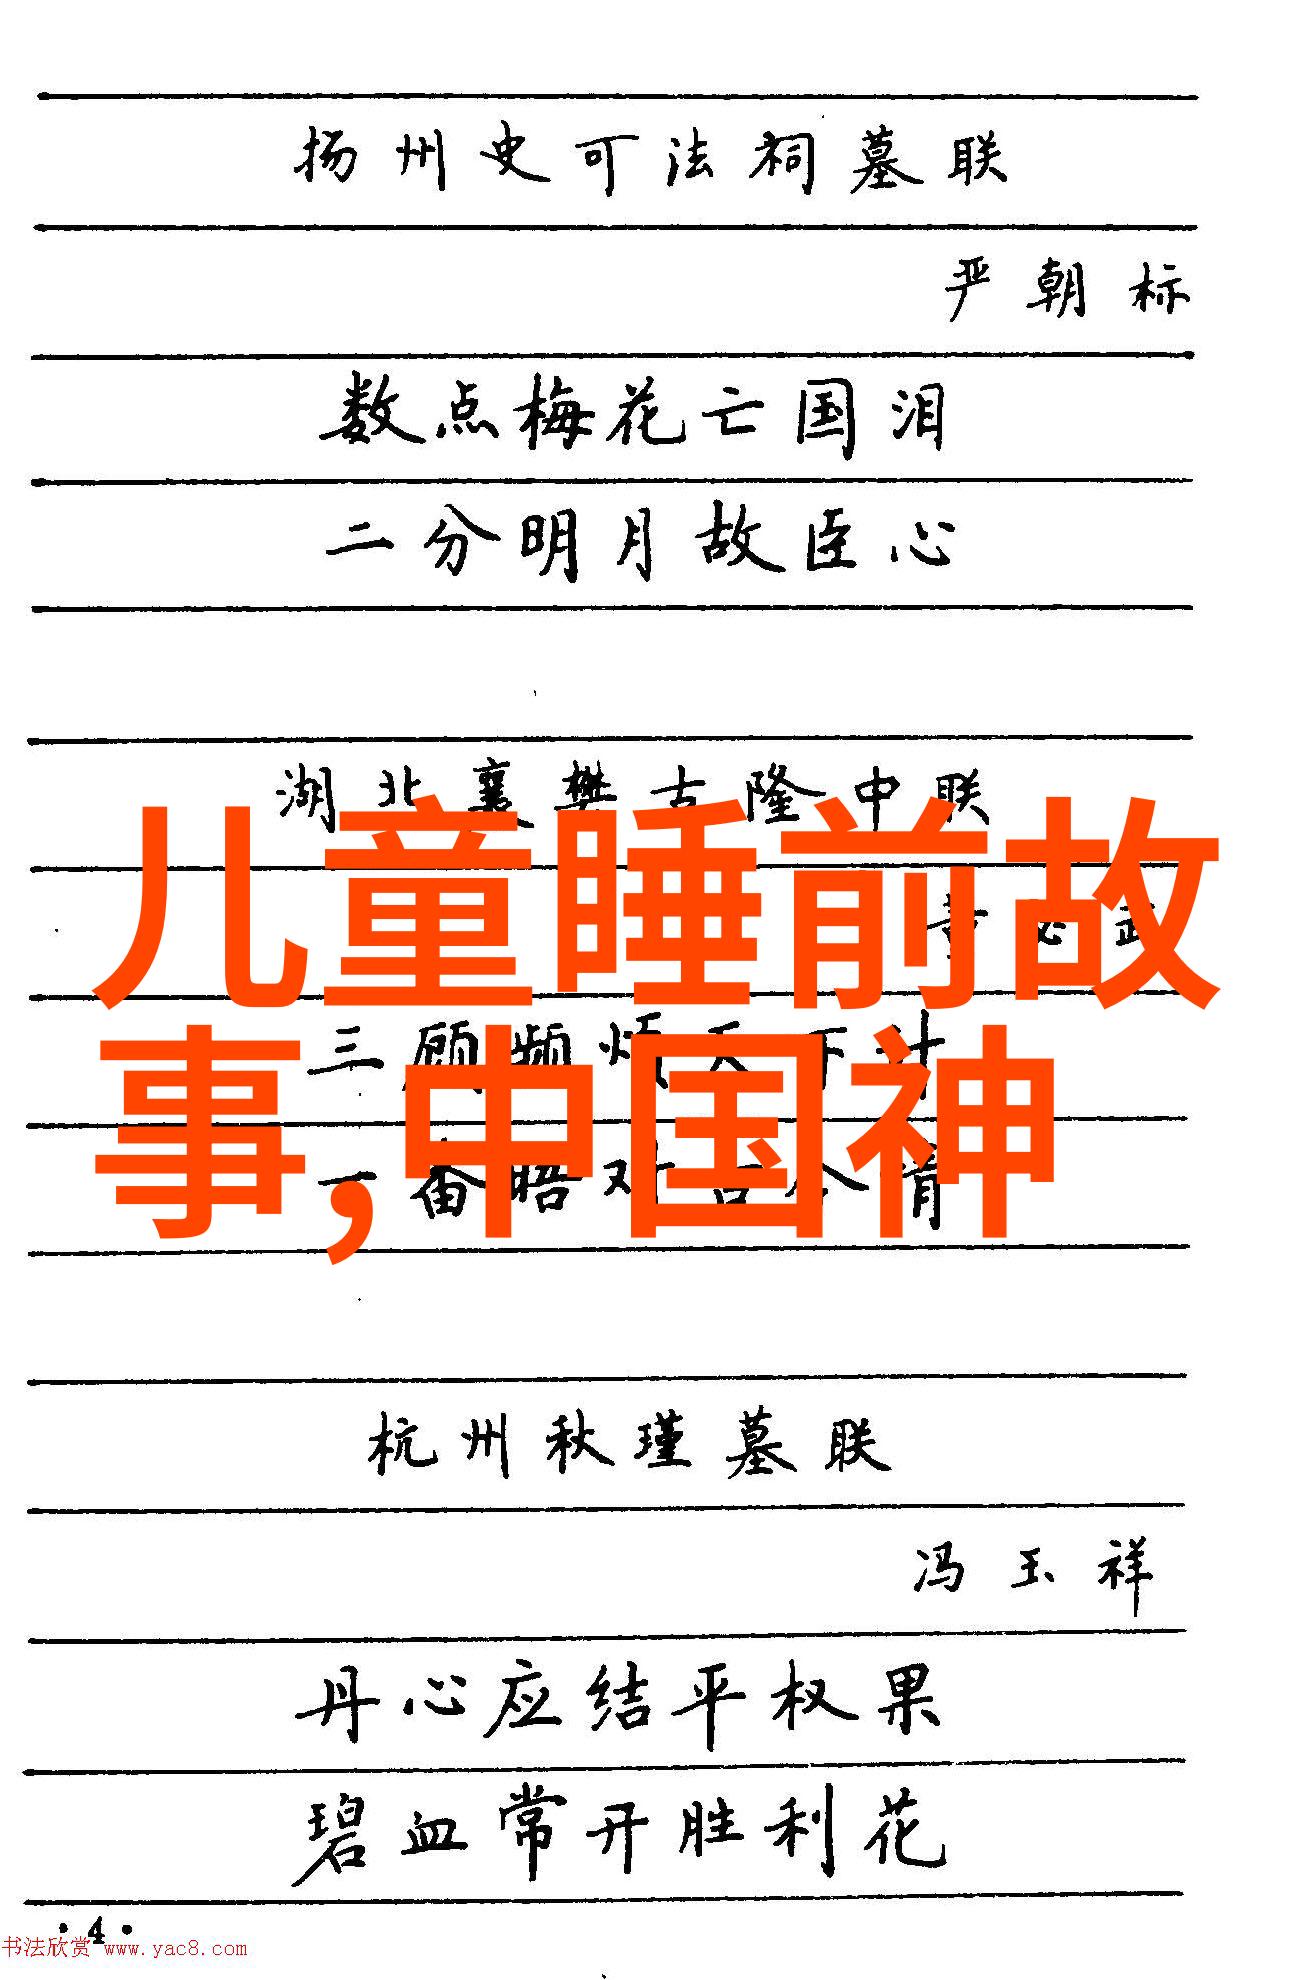 扬州史可法祠墓联
严朝标
数点梅花亡国泪
二分明月故臣心
湖北襄樊古隆中联
儿童睡前故
董必武
三顾频烦天下计
事,中国神
一番晤对古今情
杭州秋瑾墓联
冯玉祥
丹心应结平权果
碧血常开胜利花
·4·
书法欣赏 www.yac8.com